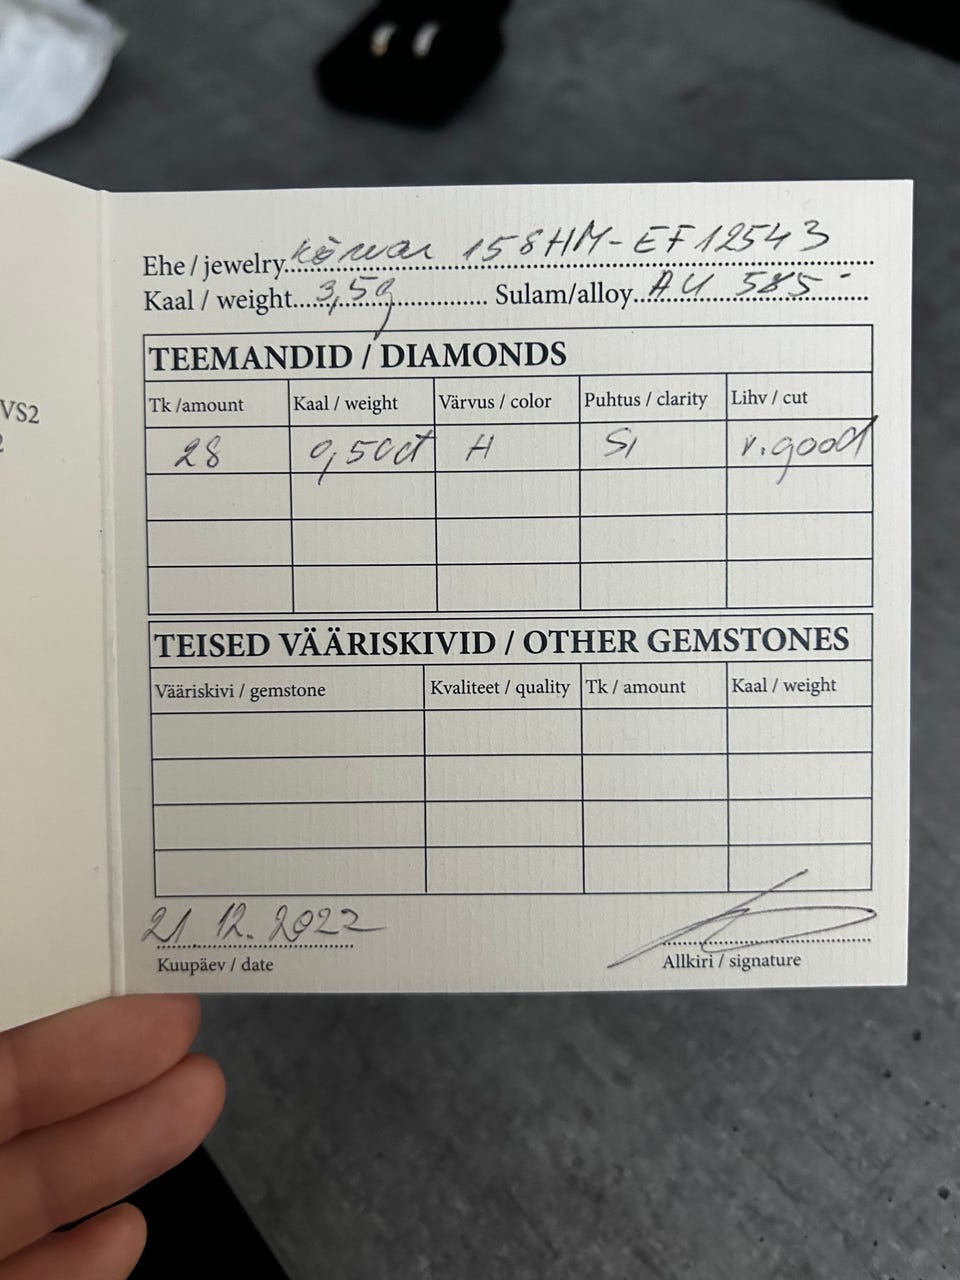 VS2
2
Ehe / jewelry kõrvar 158HM-EF12543
Kaal / weight 3,5g Sulam/alloy AU 585
TEEMANDID / DIAMONDS
Tk /amount Kaal / weight Värvus / color Puhtus / clarity Lihv / cut
28 0,50ct H SI v.good
TEISED VÄÄRISKIVID / OTHER GEMSTONES
Vääriskivi / gemstone Kvaliteet / quality Tk / amount Kaal / weight
21.12.2022
Kuupäev / date Allkiri / signature